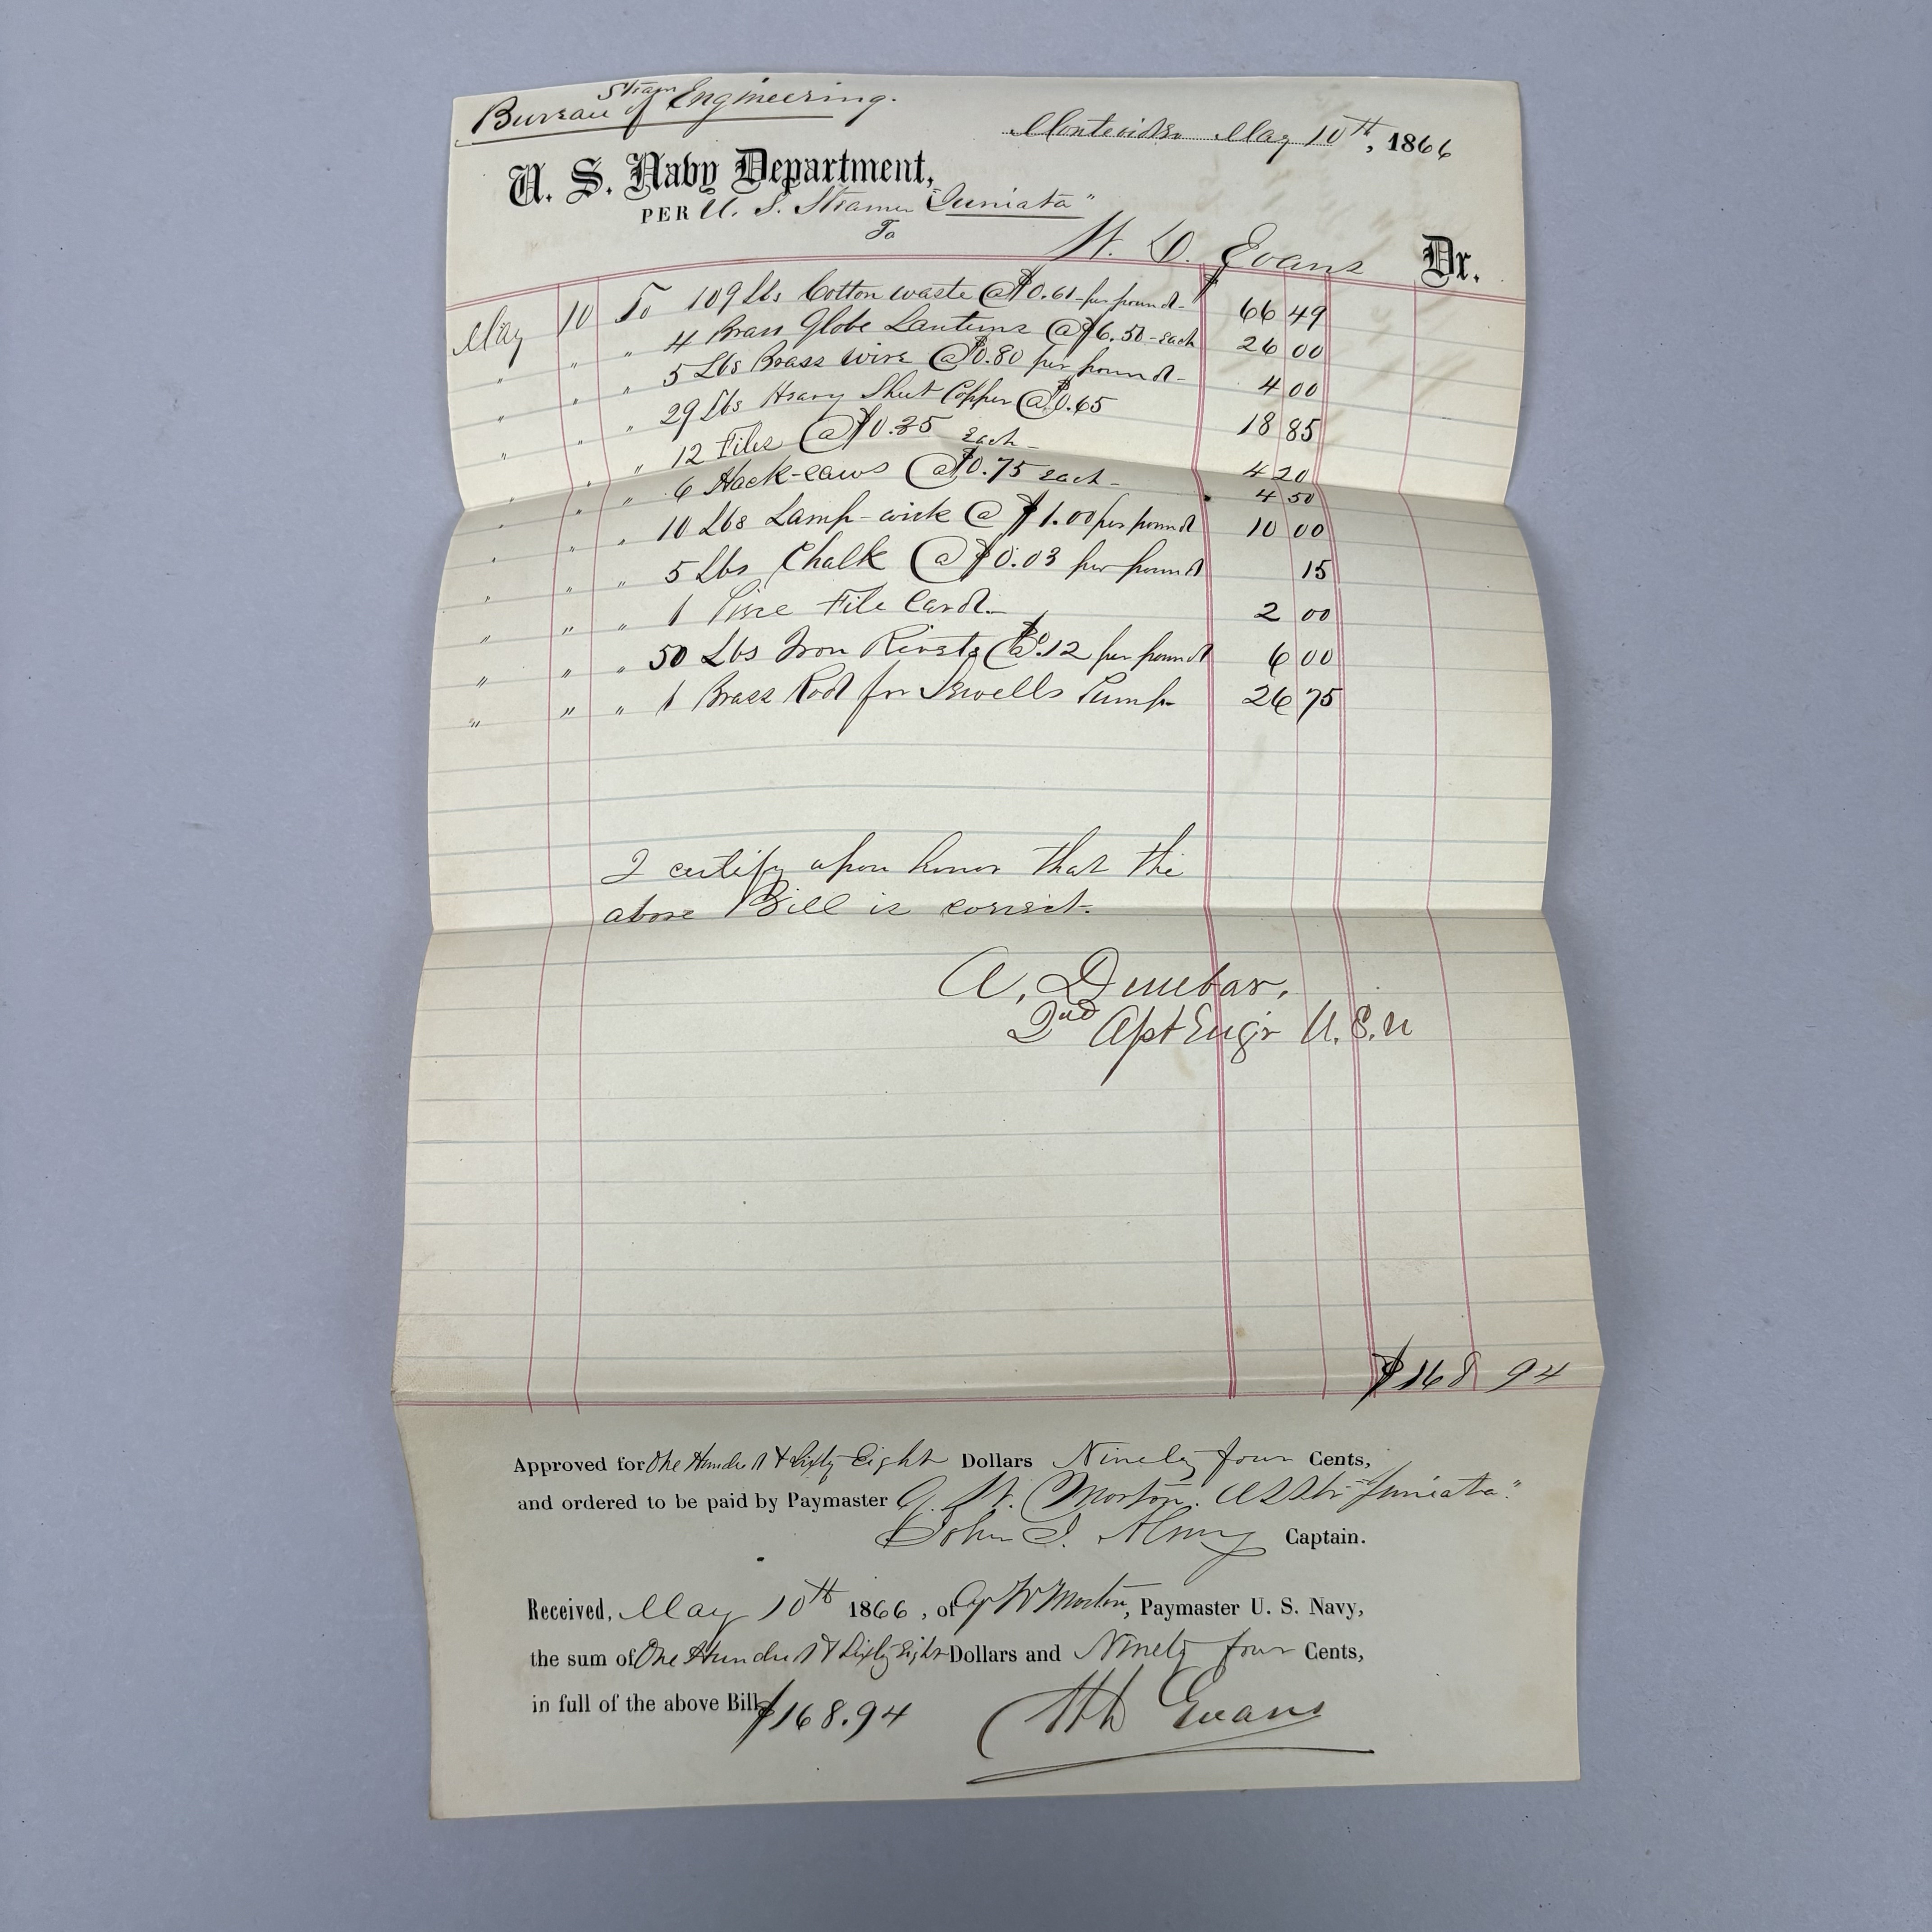 Bureau of Steam Engineering.
Montevideo May 10th, 1866
U. S. Navy Department,
PER U. S. Steamer "Juniata"
To
H. D. Evans Dr.
May 10 To 109 Lbs Cotton waste @ $0.61 per pound - $ 66 49
" " " 4 Brass Globe Lanterns @ $6.50 - each 26 00
" " " 5 Lbs Brass Wire @ $0.80 per pound - 4 00
" " " 29 Lbs Heavy Sheet Copper @ $0.65 18 85
" " " 12 Files @ $0.35 each - 4 20
" " " 6 Hack-saws @ $0.75 each - 4 50
" " " 10 Lbs Lamp-wick @ $1.00 per pound 10 00
" " " 5 Lbs Chalk @ $0.03 per pound 15
" " " 1 Piece File Card - 2 00
" " " 50 Lbs Iron Rivets @ $0.12 per pound 6 00
" " " 1 Brass Rod for Sewells Pump 26 75
I certify upon honor that the
above Bill is correct.
A. Dunbar,
2nd Asst Engr U.S.N
$168 94
Approved for One Hundred & Sixty Eight Dollars Ninety four Cents,
and ordered to be paid by Paymaster G. W. Morton. U.S.Str "Juniata"
John J. Almy Captain.
Received, May 10th 1866, of W Morton, Paymaster U. S. Navy,
the sum of One Hundred & Sixty Eight Dollars and Ninety four Cents,
in full of the above Bill $168.94
HD Evans